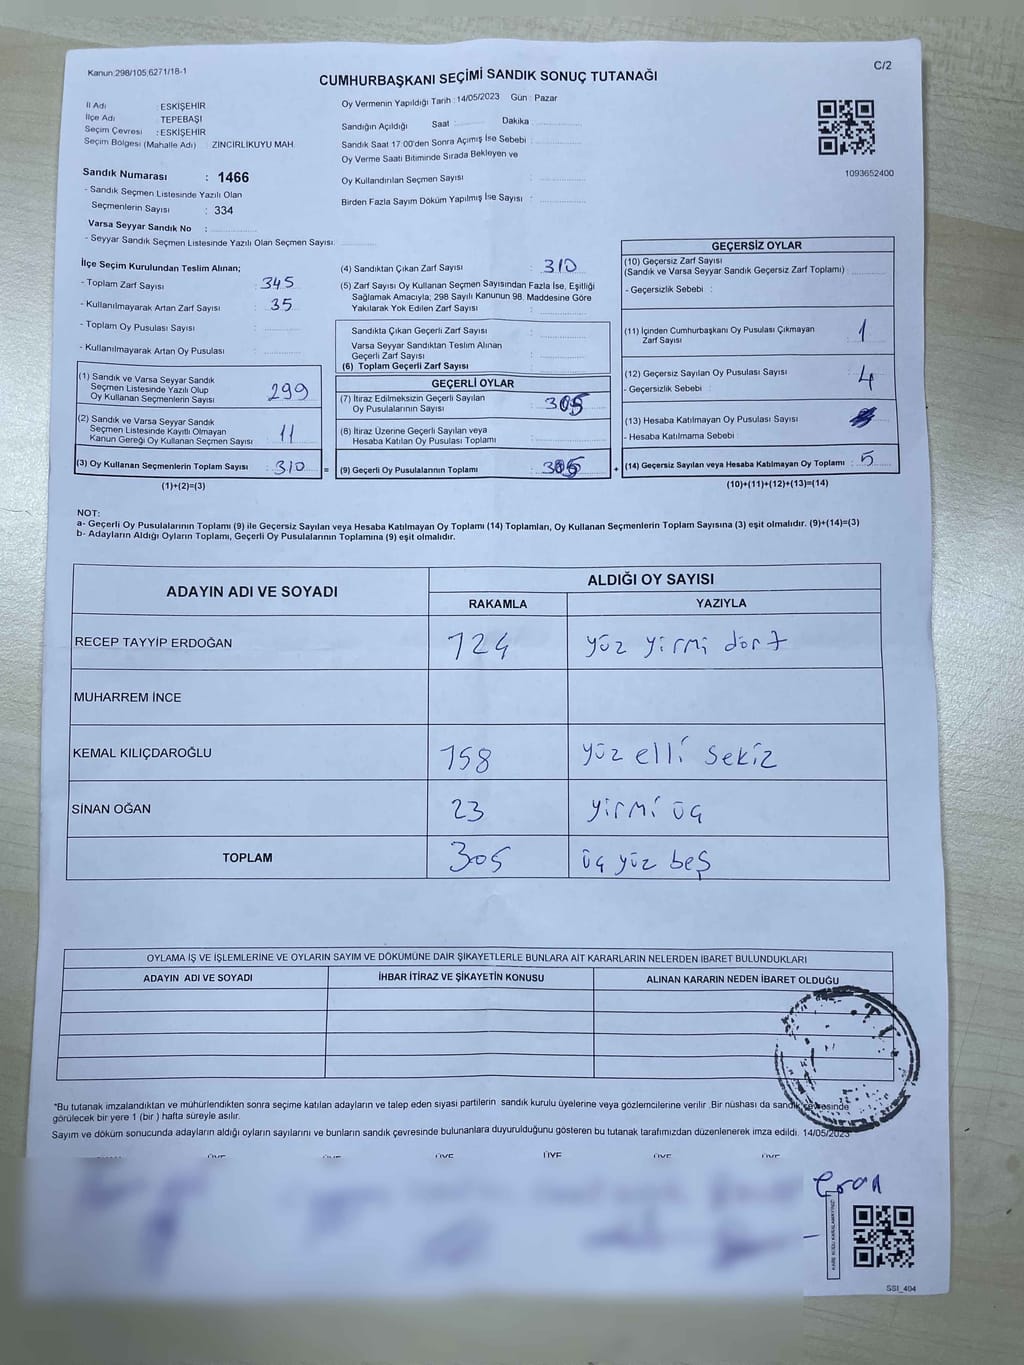 Kanun:298/105;6271/18-1
C/2
CUMHURBAŞKANI SEÇİMİ SANDIK SONUÇ TUTANAĞI
İl Adı : ESKİŞEHİR
İlçe Adı : TEPEBAŞI
Seçim Çevresi : ESKİŞEHİR
Seçim Bölgesi (Mahalle Adı) : ZİNCİRLİKUYU MAH.
Sandık Numarası : 1466
- Sandık Seçmen Listesinde Yazılı Olan
Seçmenlerin Sayısı : 334
Varsa Seyyar Sandık No :
- Seyyar Sandık Seçmen Listesinde Yazılı Olan Seçmen Sayısı:
Oy Vermenin Yapıldığı Tarih :14/05/2023 Gün : Pazar
Sandığın Açıldığı Saat : Dakika
Sandık Saat 17:00'den Sonra Açımış İse Sebebi :
Oy Verme Saati Bitiminde Sırada Bekleyen ve
Oy Kullandırılan Seçmen Sayısı :
Birden Fazla Sayım Döküm Yapılmış İse Sayısı :
1093652400
İlçe Seçim Kurulundan Teslim Alınan;
- Toplam Zarf Sayısı : 345
- Kullanılmayarak Artan Zarf Sayısı : 35
- Toplam Oy Pusulası Sayısı :
- Kullanılmayarak Artan Oy Pusulası :
(1) Sandık ve Varsa Seyyar Sandık
Seçmen Listesinde Yazılı Olup
Oy Kullanan Seçmenlerin Sayısı : 299
(2) Sandık ve Varsa Seyyar Sandık
Seçmen Listesinde Kayıtlı Olmayan
Kanun Gereği Oy Kullanan Seçmen Sayısı : 11
(3) Oy Kullanan Seçmenlerin Toplam Sayısı : 310
(1)+(2)=(3)
=
(4) Sandıktan Çıkan Zarf Sayısı : 310
(5) Zarf Sayısı Oy Kullanan Seçmen Sayısından Fazla İse, Eşitliği
Sağlamak Amacıyla; 298 Sayılı Kanunun 98. Maddesine Göre
Yakılarak Yok Edilen Zarf Sayısı :
Sandıkta Çıkan Geçerli Zarf Sayısı :
Varsa Seyyar Sandıktan Teslim Alınan
Geçerli Zarf Sayısı :
(6) Toplam Geçerli Zarf Sayısı :
GEÇERLİ OYLAR
(7) İtiraz Edilmeksizin Geçerli Sayılan
Oy Pusulasının Sayısı : 305
(8) İtiraz Üzerine Geçerli Sayılan veya
Hesaba Katılan Oy Pusulası Toplamı :
(9) Geçerli Oy Pusulalarının Toplamı : 305
+
GEÇERSİZ OYLAR
(10) Geçersiz Zarf Sayısı
(Sandık ve Varsa Seyyar Sandık Geçersiz Zarf Toplamı) :
- Geçersizlik Sebebi :
(11) İçinden Cumhurbaşkanı Oy Pusulası Çıkmayan
Zarf Sayısı : 1
(12) Geçersiz Sayılan Oy Pusulası Sayısı : 4
- Geçersizlik Sebebi :
(13) Hesaba Katılmayan Oy Pusulası Sayısı :
- Hesaba Katılmama Sebebi
(14) Geçersiz Sayılan veya Hesaba Katılmayan Oy Toplamı : 5
(10)+(11)+(12)+(13)=(14)
NOT:
a- Geçerli Oy Pusulalarının Toplamı (9) ile Geçersiz Sayılan veya Hesaba Katılmayan Oy Toplamı (14) Toplamları, Oy Kullanan Seçmenlerin Toplam Sayısına (3) eşit olmalıdır. (9)+(14)=(3)
b- Adayların Aldığı Oyların Toplamı, Geçerli Oy Pusulalarının Toplamına (9) eşit olmalıdır.
ADAYIN ADI VE SOYADI
ALDIĞI OY SAYISI
RAKAMLA YAZIYLA
RECEP TAYYİP ERDOĞAN 124 yüz yirmi dört
MUHARREM İNCE
KEMAL KILIÇDAROĞLU 158 yüz elli sekiz
SİNAN OĞAN 23 yirmi üç
TOPLAM 305 üç yüz beş
OYLAMA İŞ VE İŞLEMLERİNE VE OYLARIN SAYIM VE DÖKÜMÜNE DAİR ŞİKAYETLERLE BUNLARA AİT KARARLARIN NELERDEN İBARET BULUNDUKLARI
ADAYIN ADI VE SOYADI İHBAR İTİRAZ VE ŞİKAYETİN KONUSU ALINAN KARARIN NEDEN İBARET OLDUĞU
*Bu tutanak imzalandıktan ve mühürlendikten sonra seçime katılan adayların ve talep eden siyasi partilerin sandık kurulu üyelerine veya gözlemcilerine verilir .Bir nüshası da sandık çevresinde
görülecek bir yere 1 (bir ) hafta süreyle asılır.
Sayım ve döküm sonucunda adayların aldığı oyların sayılarını ve bunların sandık çevresinde bulunanlara duyurulduğunu gösteren bu tutanak tarafımızdan düzenlenerek imza edildi. 14/05/2023
ÜYE ÜYE ÜYE ÜYE ÜYE ÜYE
SSI_404